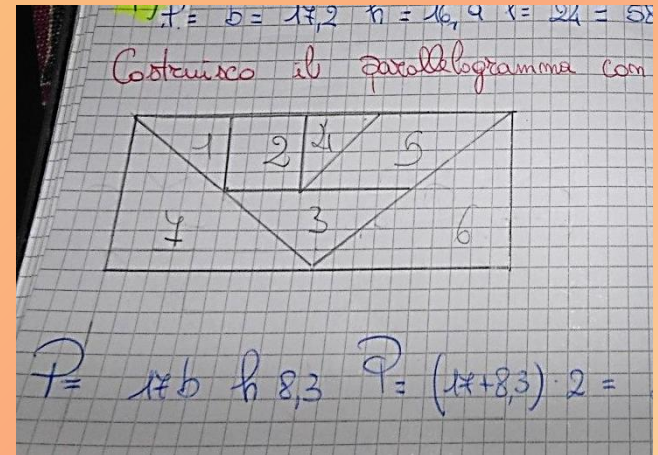 P= b= 17,2 h = 16,4 l= 24 = 58
Costruisco il parallelogramma com
1 2 4 5
7 3 6
P= 17 b h 8,3 P= (17+8,3)·2 =